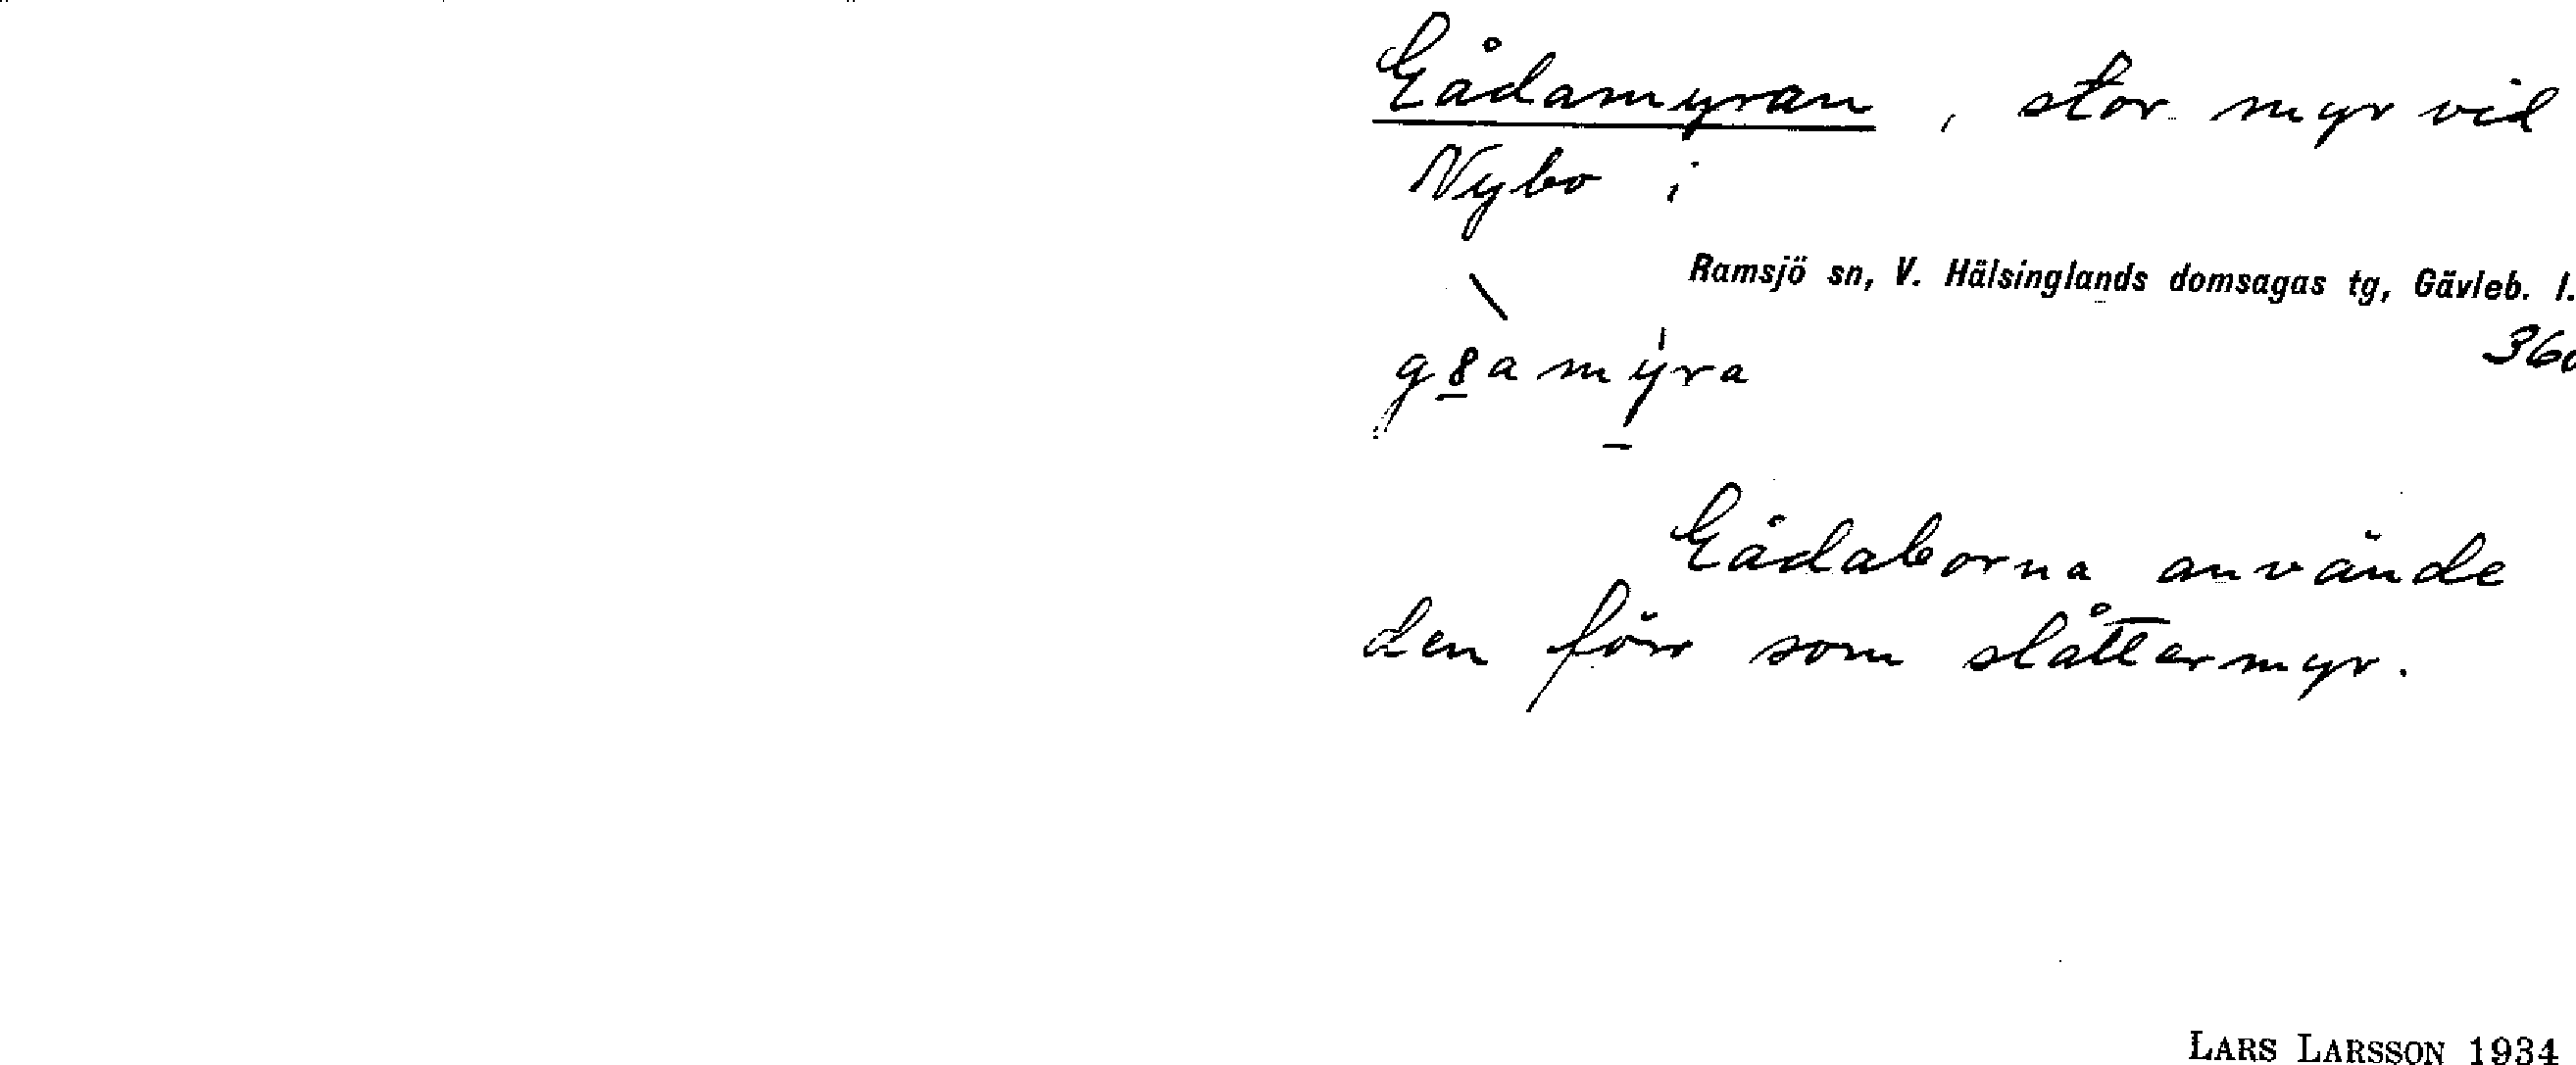 Gådamyran, stor myr vid
Nybo i
Ramsjö sn, V. Hälsinglands domsagas tg, Gävleb. l.
360
g8amyra
Gådaborna använde
den förr som slåttermyr.
LARS LARSSON 1934